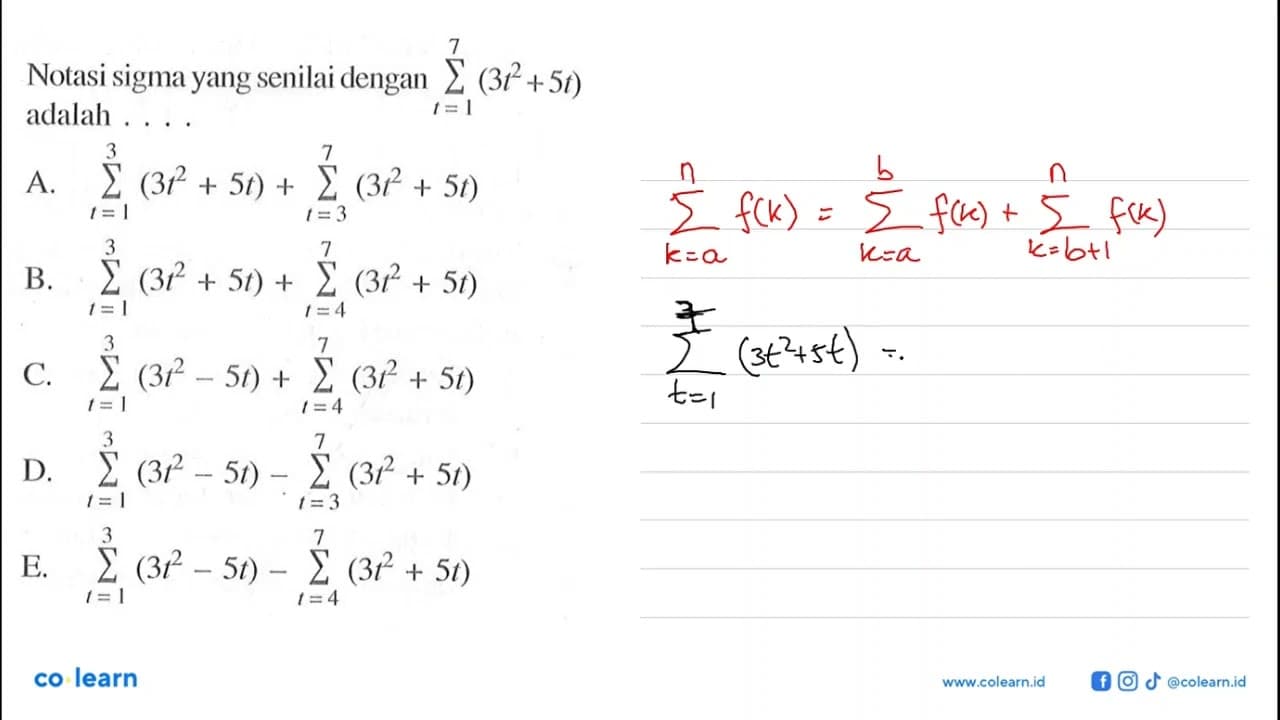 Notasi sigma yang senilai dengan \sum_{t=1}^{7} (3t² + 5t)
adalah . . . .
A. \sum_{t=1}^{3} (3t² + 5t) + \sum_{t=3}^{7} (3t² + 5t)
B. \sum_{t=1}^{3} (3t² + 5t) + \sum_{t=4}^{7} (3t² + 5t)
C. \sum_{t=1}^{3} (3t² – 5t) + \sum_{t=4}^{7} (3t² + 5t)
D. \sum_{t=1}^{3} (3t² – 5t) – \sum_{t=3}^{7} (3t² + 5t)
E. \sum_{t=1}^{3} (3t² – 5t) – \sum_{t=4}^{7} (3t² + 5t)
\sum_{k=a}^{n} f(k) = \sum_{k=a}^{b} f(k) + \sum_{k=b+1}^{n} f(k)
\sum_{t=1} (3t²+5t) =
co learn
www.colearn.id
@colearn.id